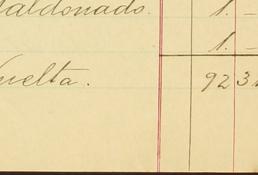 aldonado. 1. -
1. -
uelta. 92 3